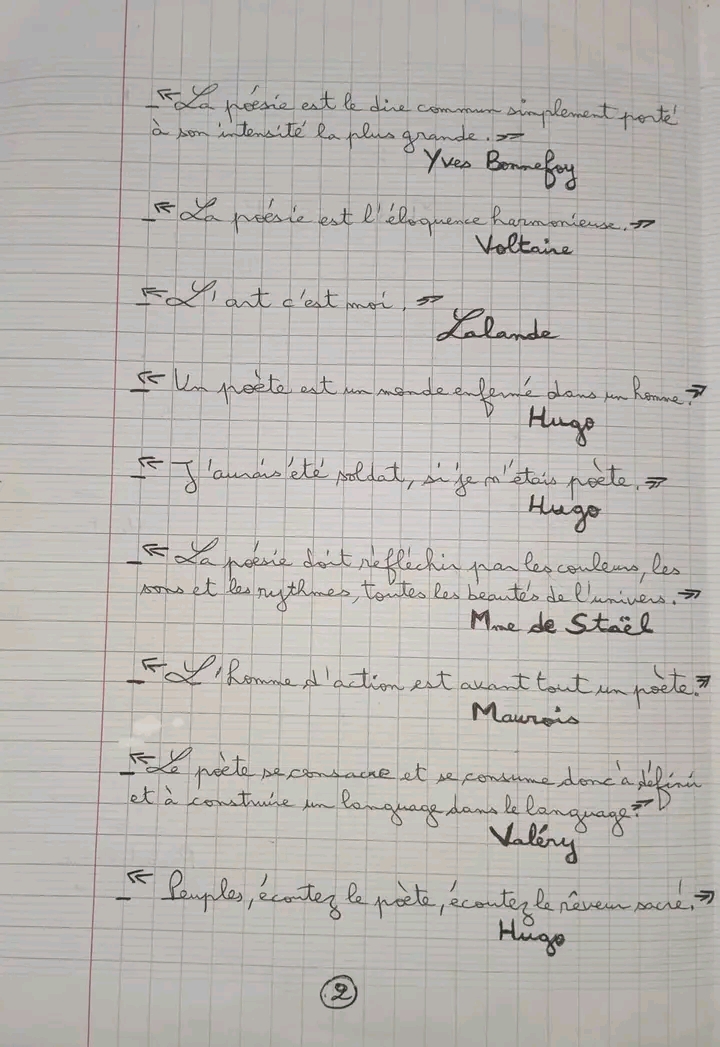 _ « La poésie est le dire commun simplement porté
à son intensité la plus grande. »
Yves Bonnefoy
_ « La poésie est l'éloquence harmonieuse. »
Voltaire
_ « L'art c'est moi. »
Lalande
_ « Un poète est un monde enfermé dans un homme. »
Hugo
_ « J'aurais été soldat, si je n'étais poète. »
Hugo
_ « La poésie doit réfléchir par les couleurs, les
sons et les rythmes, toutes les beautés de l'univers. »
Mme de Staël
_ « L'homme d'action est avant tout un poète. »
Maurois
_ « Le poète se consacre et se consume donc à définir
et à construire un language dans le language. »
Valéry
_ « Peuples, écoutez le poète, écoutez le rêveur sacré. »
Hugo
2